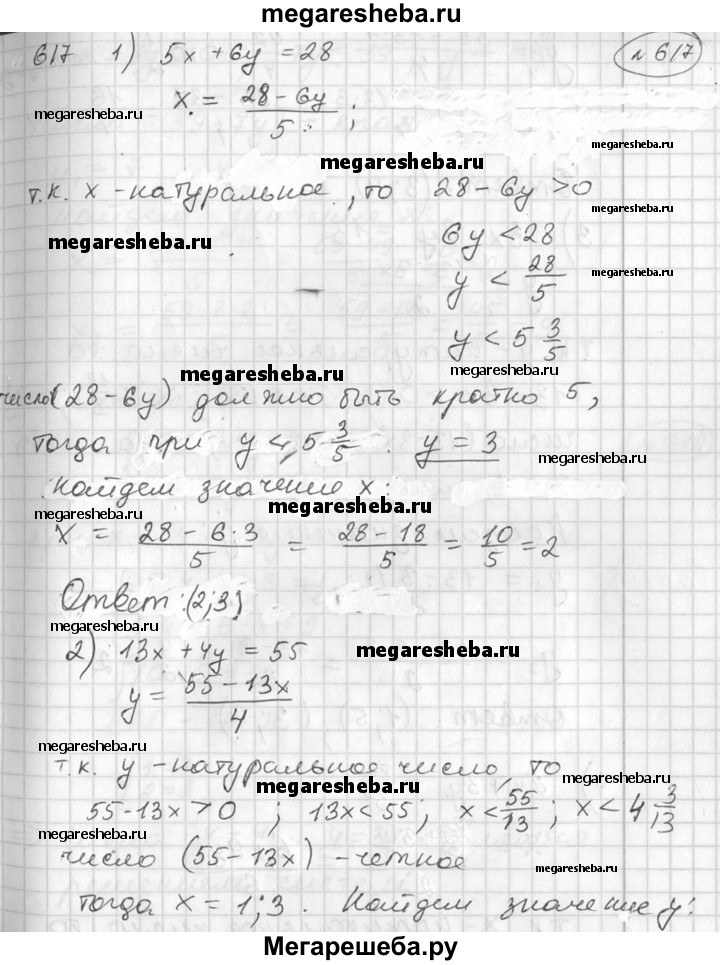 megaresheba.ru
617 1) 5x + 6y = 28 №617
x = (28 - 6y)/5 ;
megaresheba.ru
megaresheba.ru
megaresheba.ru
т.к. x - натуральное, то 28 - 6y > 0
megaresheba.ru
6y < 28
y < 28/5
megaresheba.ru
y < 5 3/5
megaresheba.ru
megaresheba.ru
число (28 - 6y) должно быть кратно 5,
тогда при y < 5 3/5 . y = 3
megaresheba.ru
найдем значение x:
megaresheba.ru
megaresheba.ru
x = (28 - 6·3)/5 = (28 - 18)/5 = 10/5 = 2
Ответ: (2;3)
megaresheba.ru
megaresheba.ru
2) 13x + 4y = 55
megaresheba.ru
y = (55 - 13x)/4
megaresheba.ru
т.к. y - натуральное число, то
megaresheba.ru
megaresheba.ru
55 - 13x > 0 ; 13x < 55 ; x < 55/13 ; x < 4 3/13
megaresheba.ru
число (55 - 13x) - четное
megaresheba.ru
тогда x = 1; 3 . Найдем значение y:
Мегарешеба.ру